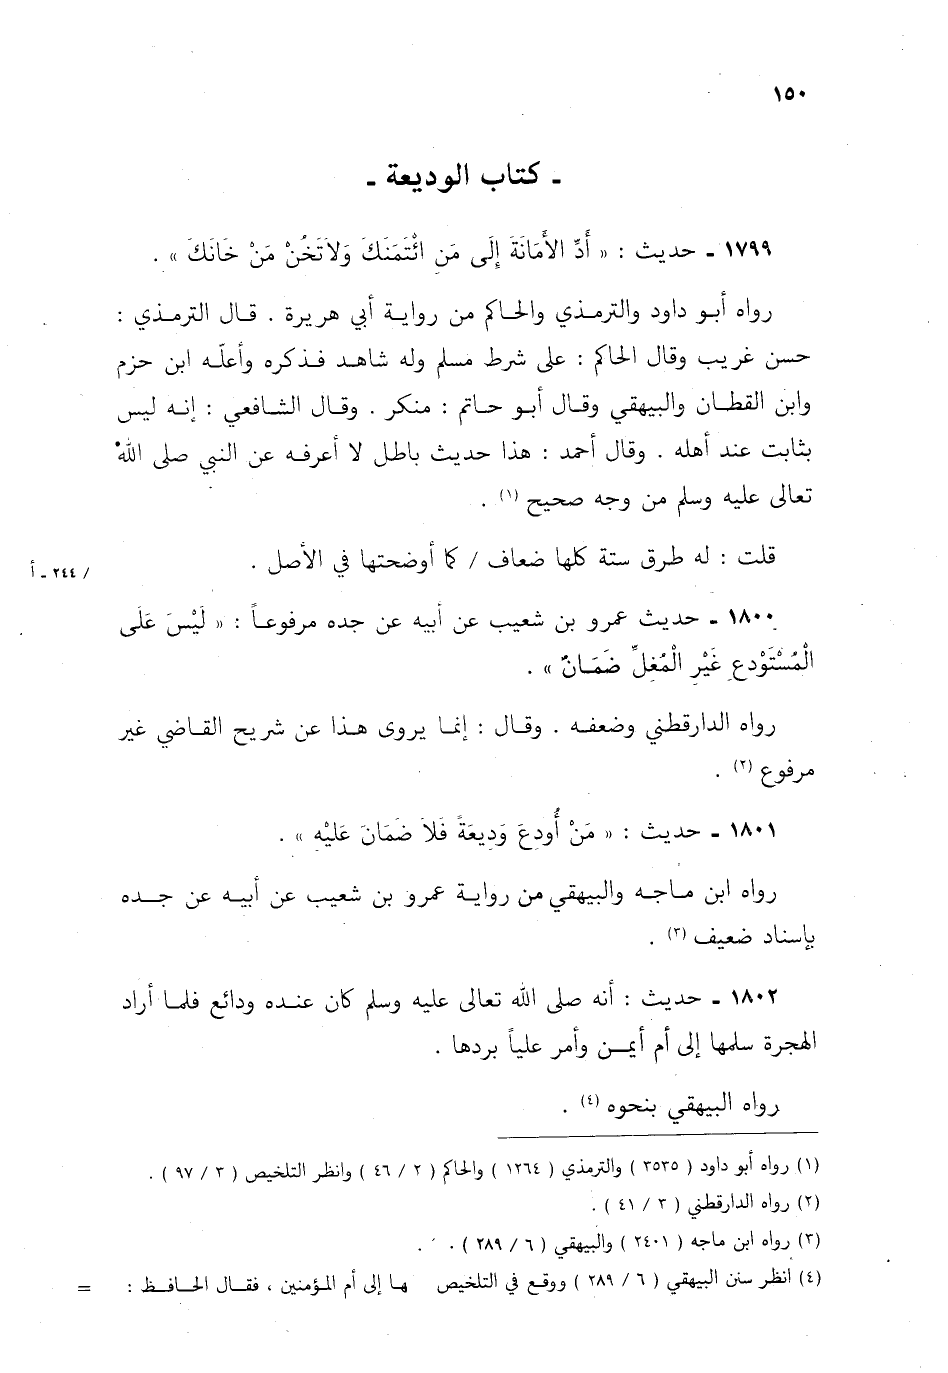 ١٥٠
ـ كتاب الوديعة ـ
١٧٩٩ ـ حديث : « أَدِّ الأَمَانَةَ إِلَى مَنِ ائْتَمَنَكَ وَلاَتَخُنْ مَنْ خَانَكَ » .
رواه أبو داود والترمذي والحاكم من رواية أبي هريرة . قال الترمذي :
حسن غريب وقال الحاكم : على شرط مسلم وله شاهد فذكره وأعلّه ابن حزم
وابن القطان والبيهقي وقال أبو حاتم : منكر . وقال الشافعي : إنه ليس
بثابت عند أهله . وقال أحمد : هذا حديث باطل لا أعرفه عن النبي صلى الله
تعالى عليه وسلم من وجه صحيح (١) .
قلت : له طرق ستة كلها ضعاف / كما أوضحتها في الأصل .
/ ٢٤٤ ـ أ
١٨٠٠ ـ حديث عمرو بن شعيب عن أبيه عن جده مرفوعاً : « لَيْسَ عَلَى
الْمُسْتَوْدعِ غَيْرِ الْمُغِلِّ ضَمَانٌ » .
رواه الدارقطني وضعفه . وقال : إنما يروى هذا عن شريح القاضي غير
مرفوع (٢) .
١٨٠١ ـ حديث : « مَنْ أُودِعَ وَدِيعَةً فَلاَ ضَمَانَ عَلَيْهِ » .
رواه ابن ماجه والبيهقي من رواية عمرو بن شعيب عن أبيه عن جده
بإسناد ضعيف (٣) .
١٨٠٢ ـ حديث : أنه صلى الله تعالى عليه وسلم كان عنده ودائع فلما أراد
الهجرة سلمها إلى أم أيمن وأمر علياً بردها .
رواه البيهقي بنحوه (٤) .
(١) رواه أبو داود ( ٣٥٣٥ ) والترمذي ( ١٢٦٤ ) والحاكم ( ٢ / ٤٦ ) وانظر التلخيص ( ٣ / ٩٧ ) .
(٢) رواه الدارقطني ( ٣ / ٤١ ) .
(٣) رواه ابن ماجه ( ٢٤٠١ ) والبيهقي ( ٦ / ٢٨٩ ) .
(٤) انظر سنن البيهقي ( ٦ / ٢٨٩ ) ووقع في التلخيص ها إلى أم المؤمنين ، فقال الحافظ : =